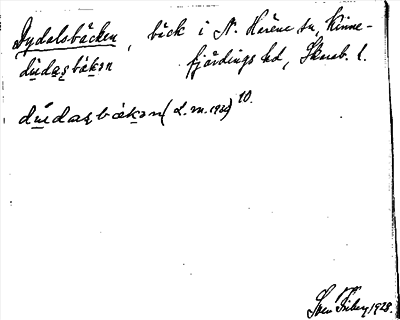 Dydalsbäcken, bäck i N. Härene sn, Kinne-
dúdas bákan fjärdings hd, Skarab. l.
dúdas bákan (L. m. 1926) 10.
Sven Friberg 1928.